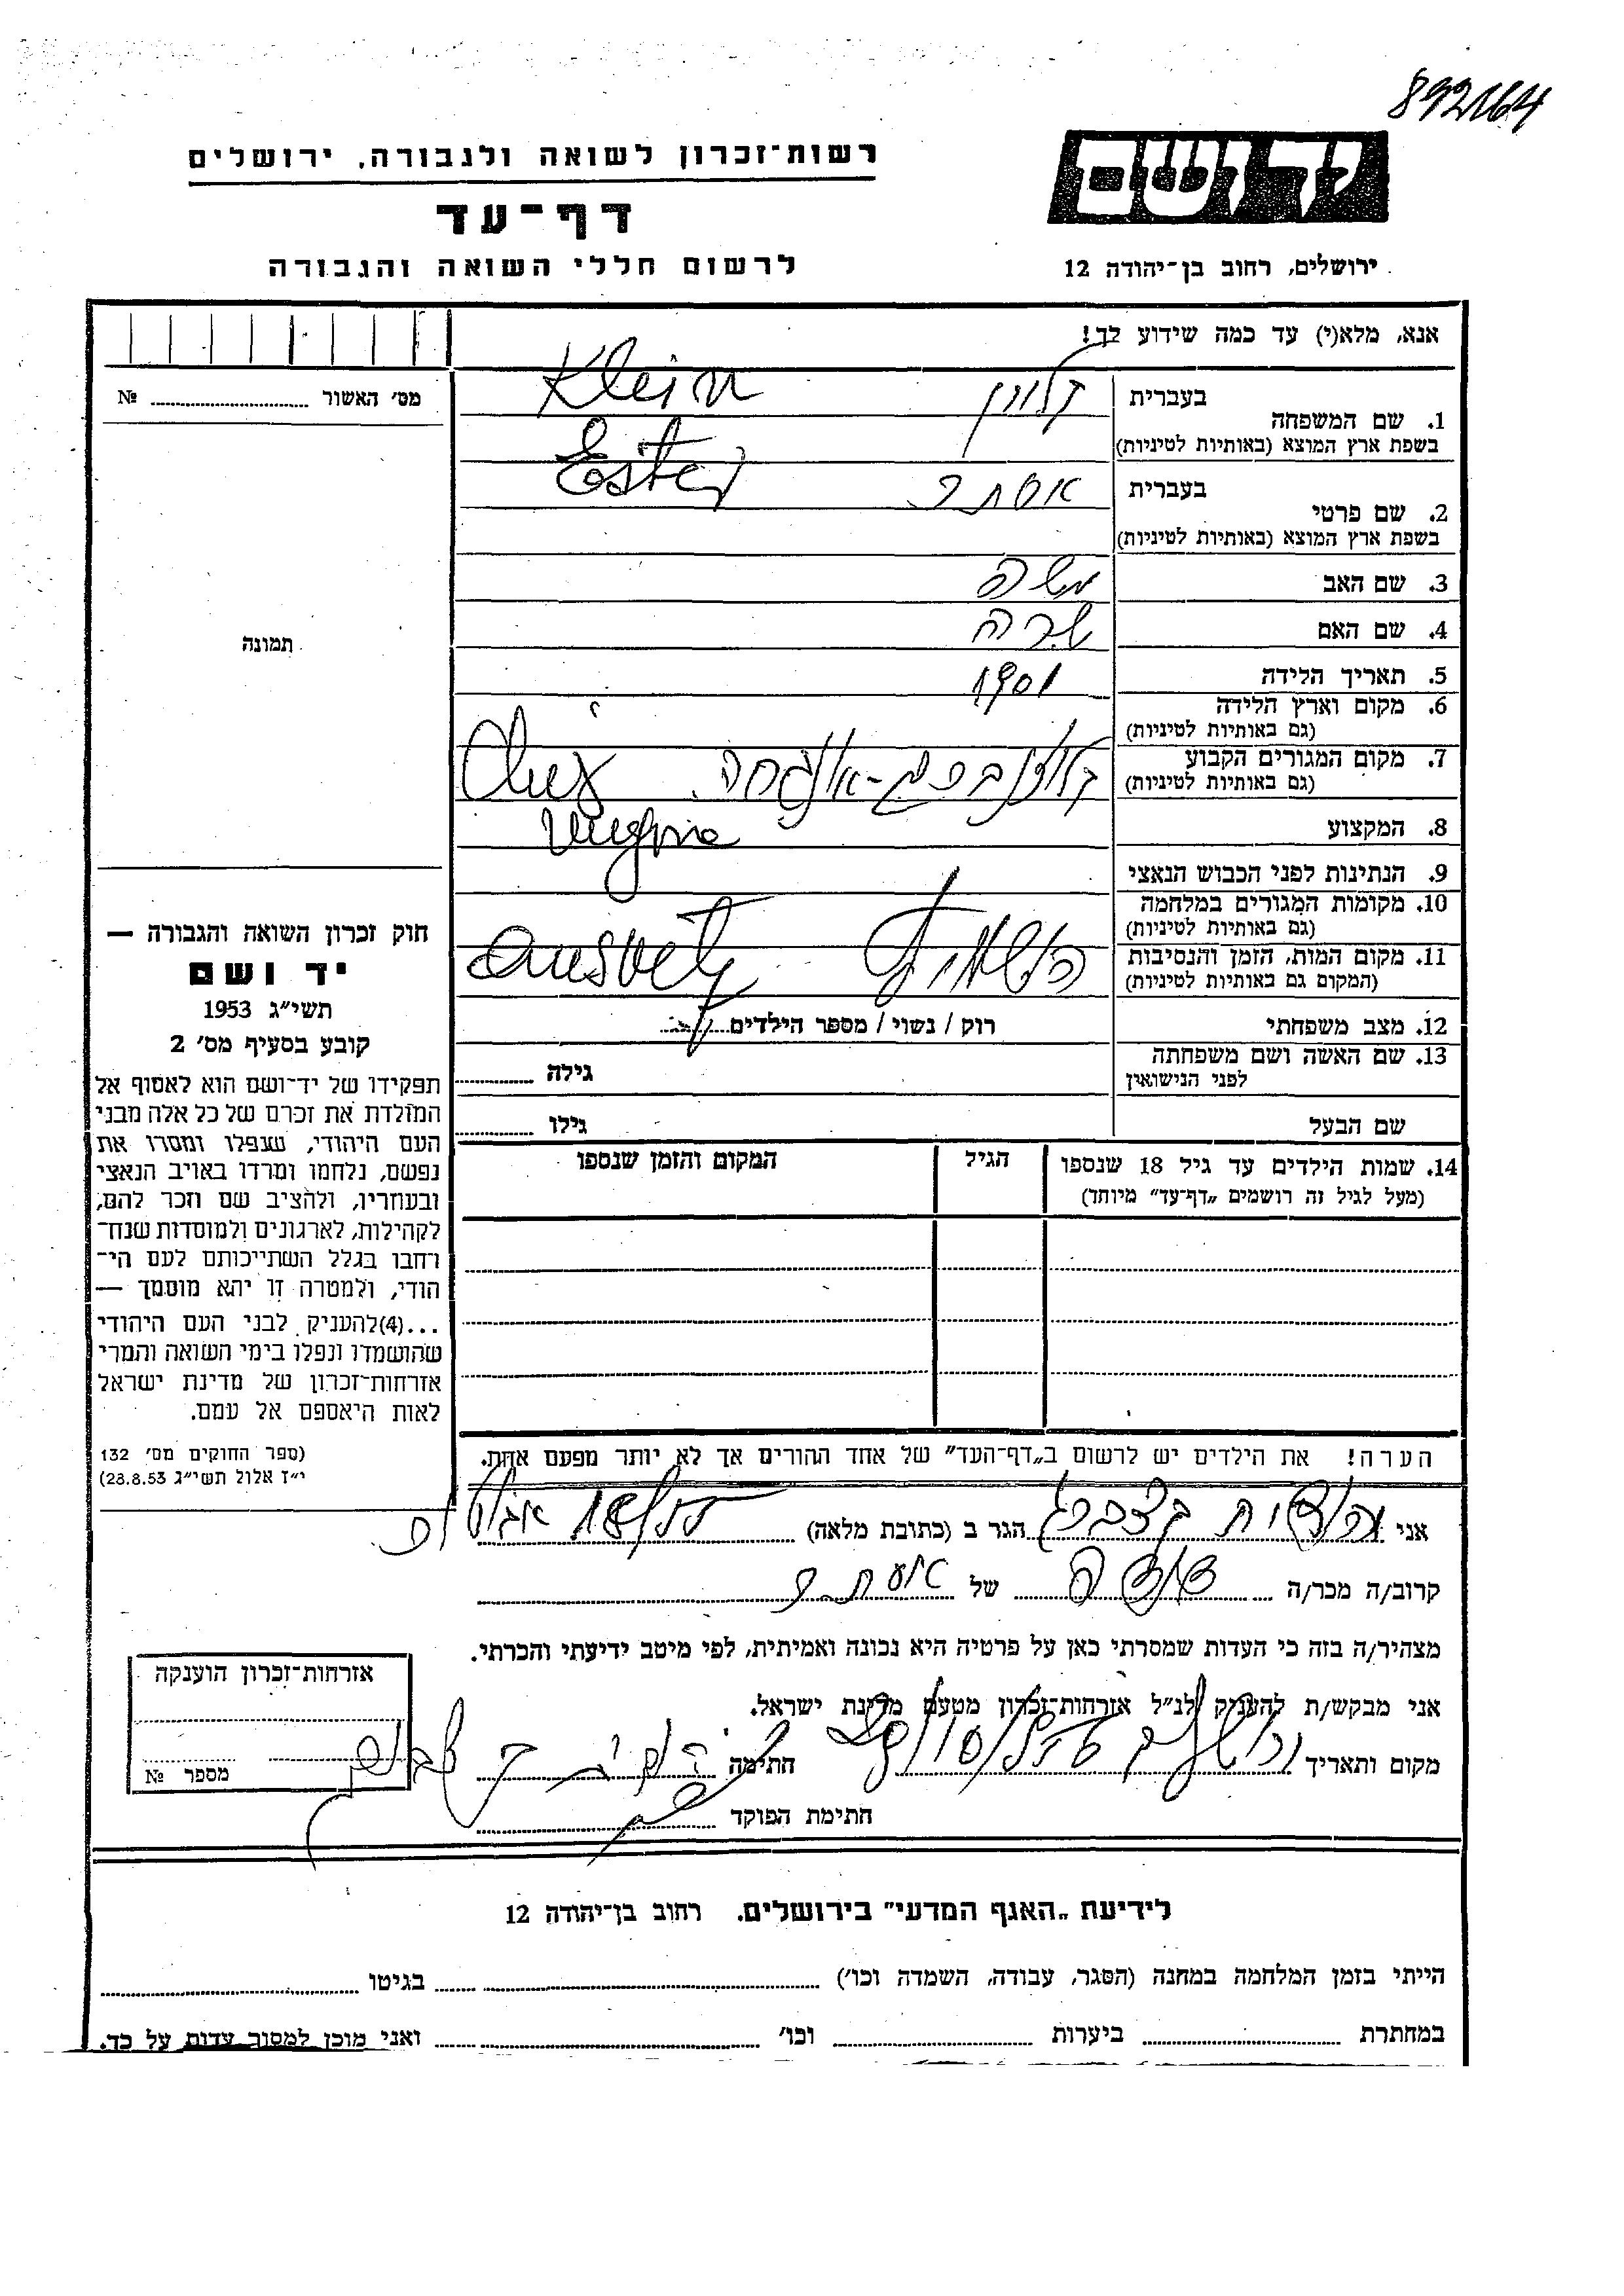 892164
יד ושם
רשות־זכרון לשואה ולגבורה, ירושלים
דף־עד
לרשום חללי השואה והגבורה
ירושלים, רחוב בן־יהודה 12
אנא, מלא(י) עד כמה שידוע לך!
1. שם המשפחה
בעברית
קליין Klein
בשפת ארץ המוצא (באותיות לטיניות)
2. שם פרטי
בעברית
אסתר Ester
בשפת ארץ המוצא (באותיות לטיניות)
3. שם האב משה
4. שם האם שרה
5. תאריך הלידה 1901
6. מקום וארץ הלידה
(גם באותיות לטיניות)
7. מקום המגורים הקבוע
(גם באותיות לטיניות)
Cluj
8. המקצוע
9. הנתינות לפני הכבוש הנאצי
10. מקומות המגורים במלחמה
(גם באותיות לטיניות)
11. מקום המות, הזמן והנסיבות
(המקום גם באותיות לטיניות)
12. מצב משפחתי רוק / נשוי / מספר הילדים
13. שם האשה ושם משפחתה
לפני הנישואין
גילה
שם הבעל גילו
14. שמות הילדים עד גיל 18 שנספו
(מעל לגיל זה רושמים „דף־עד” מיוחד)
הגיל
המקום והזמן שנספו
הערה! את הילדים יש לרשום ב„דף־העד” של אחד ההורים אך לא יותר מפעם אחת.
מס׳ האשור №
תמונה
חוק זכרון השואה והגבורה —
יד ושם
תשי״ג 1953
קובע בסעיף מס׳ 2
תפקידו של יד־ושם הוא לאסוף אל
המולדת את זכרם של כל אלה מבני
העם היהודי, שנפלו ומסרו את
נפשם, נלחמו ומרדו באויב הנאצי
ובעוזריו, ולהציב שם וזכר להם,
לקהילות, לארגונים ולמוסדות שנח־
רחבו בגלל השתייכותם לעם הי־
הודי, ולמטרה זו יהא מוסמך —
...(4)להעניק לבני העם היהודי
שהושמדו ונפלו בימי השואה והמרי
אזרחות־זכרון של מדינת ישראל
לאות היאספם אל עמם.
(ספר החוקים מס׳ 132
י״ז אלול תשי״ג 28.8.53)
אני הגר ב (כתובת מלאה)
קרוב/ה מכר/ה של
מצהיר/ה בזה כי העדות שמסרתי כאן על פרטיה היא נכונה ואמיתית, לפי מיטב ידיעתי והכרתי.
אני מבקש/ת להעניק לנ״ל אזרחות־זכרון מטעם מדינת ישראל.
מקום ותאריך ירושלים חתימה
חתימת הפוקד
אזרחות־זכרון הוענקה
מספר №
לידיעת „האגף המדעי” בירושלים. רחוב בן־יהודה 12
הייתי בזמן המלחמה במחנה (הסגר, עבודה, השמדה וכו׳) בגיטו
במחתרת ביערות וכו׳ ואני מוכן למסור עדות על כך.